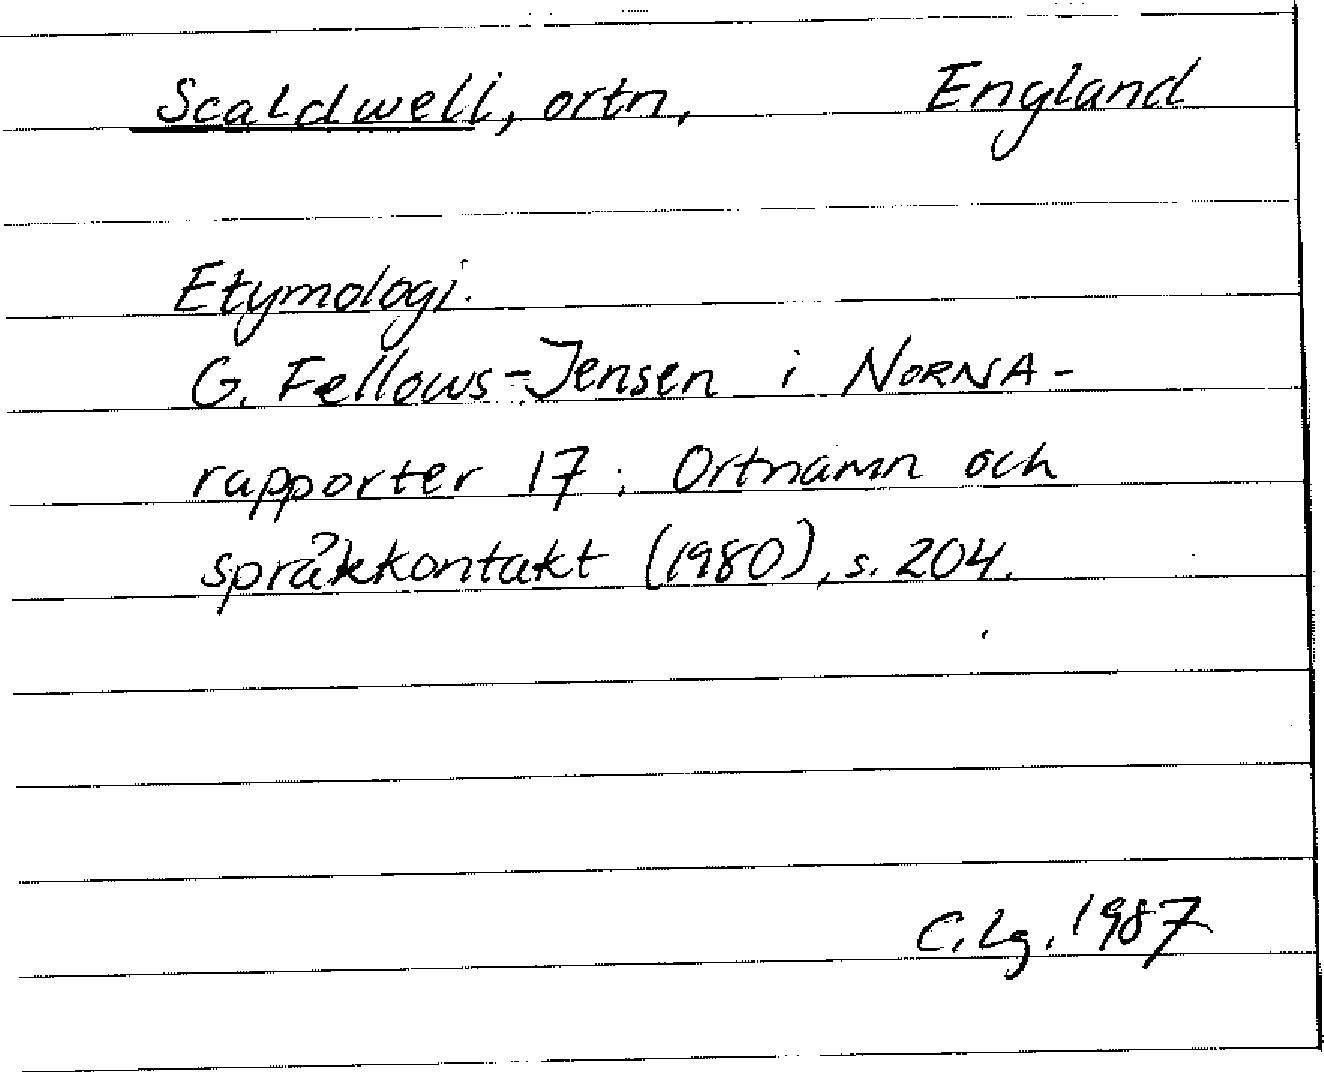 Scaldwell, ortn, England
Etymologi.
G. Fellows-Jensen i NORNA-
rapporter 17: Ortnamn och
språkkontakt (1980), s. 204.
C. Lg. 1987